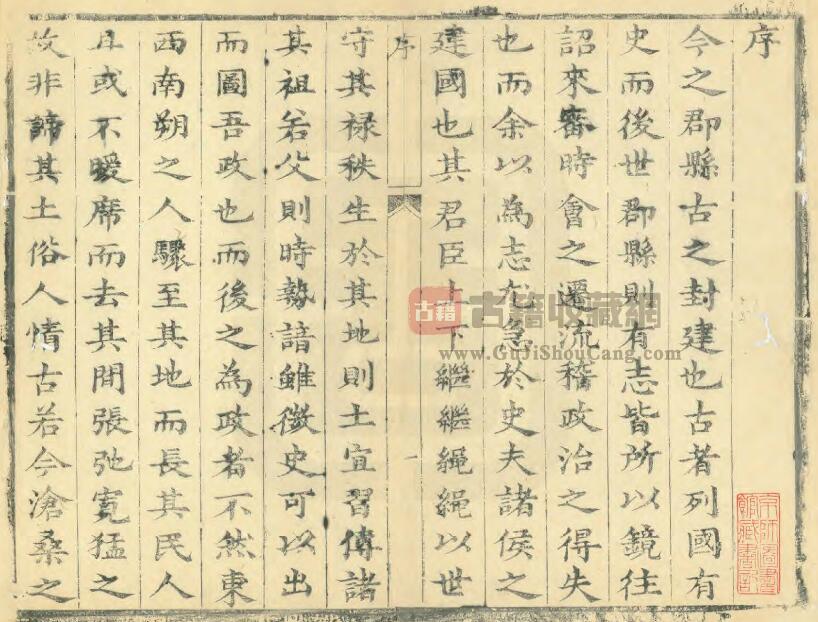 序
今之郡縣古之封建也古者列國有
史而後世郡縣則有志皆所以鏡往
詔來審時會之遷流稽政治之得失
也而余以為志尤急於史夫諸侯之
建國也其君臣上下繼繼繩繩以世
序
一
守其祿秩生於其地則土宜習傳諸
其祖若父則時勢諳雖微史可以出
而圖吾政也而後之為政者不然東
西南朔之人驟至其地而長其民人
且或不暖席而去其間張弛寬猛之
故非諦其土俗人情古若今滄桑之
古籍
古籍收藏網
www.GuJiShouCang.com